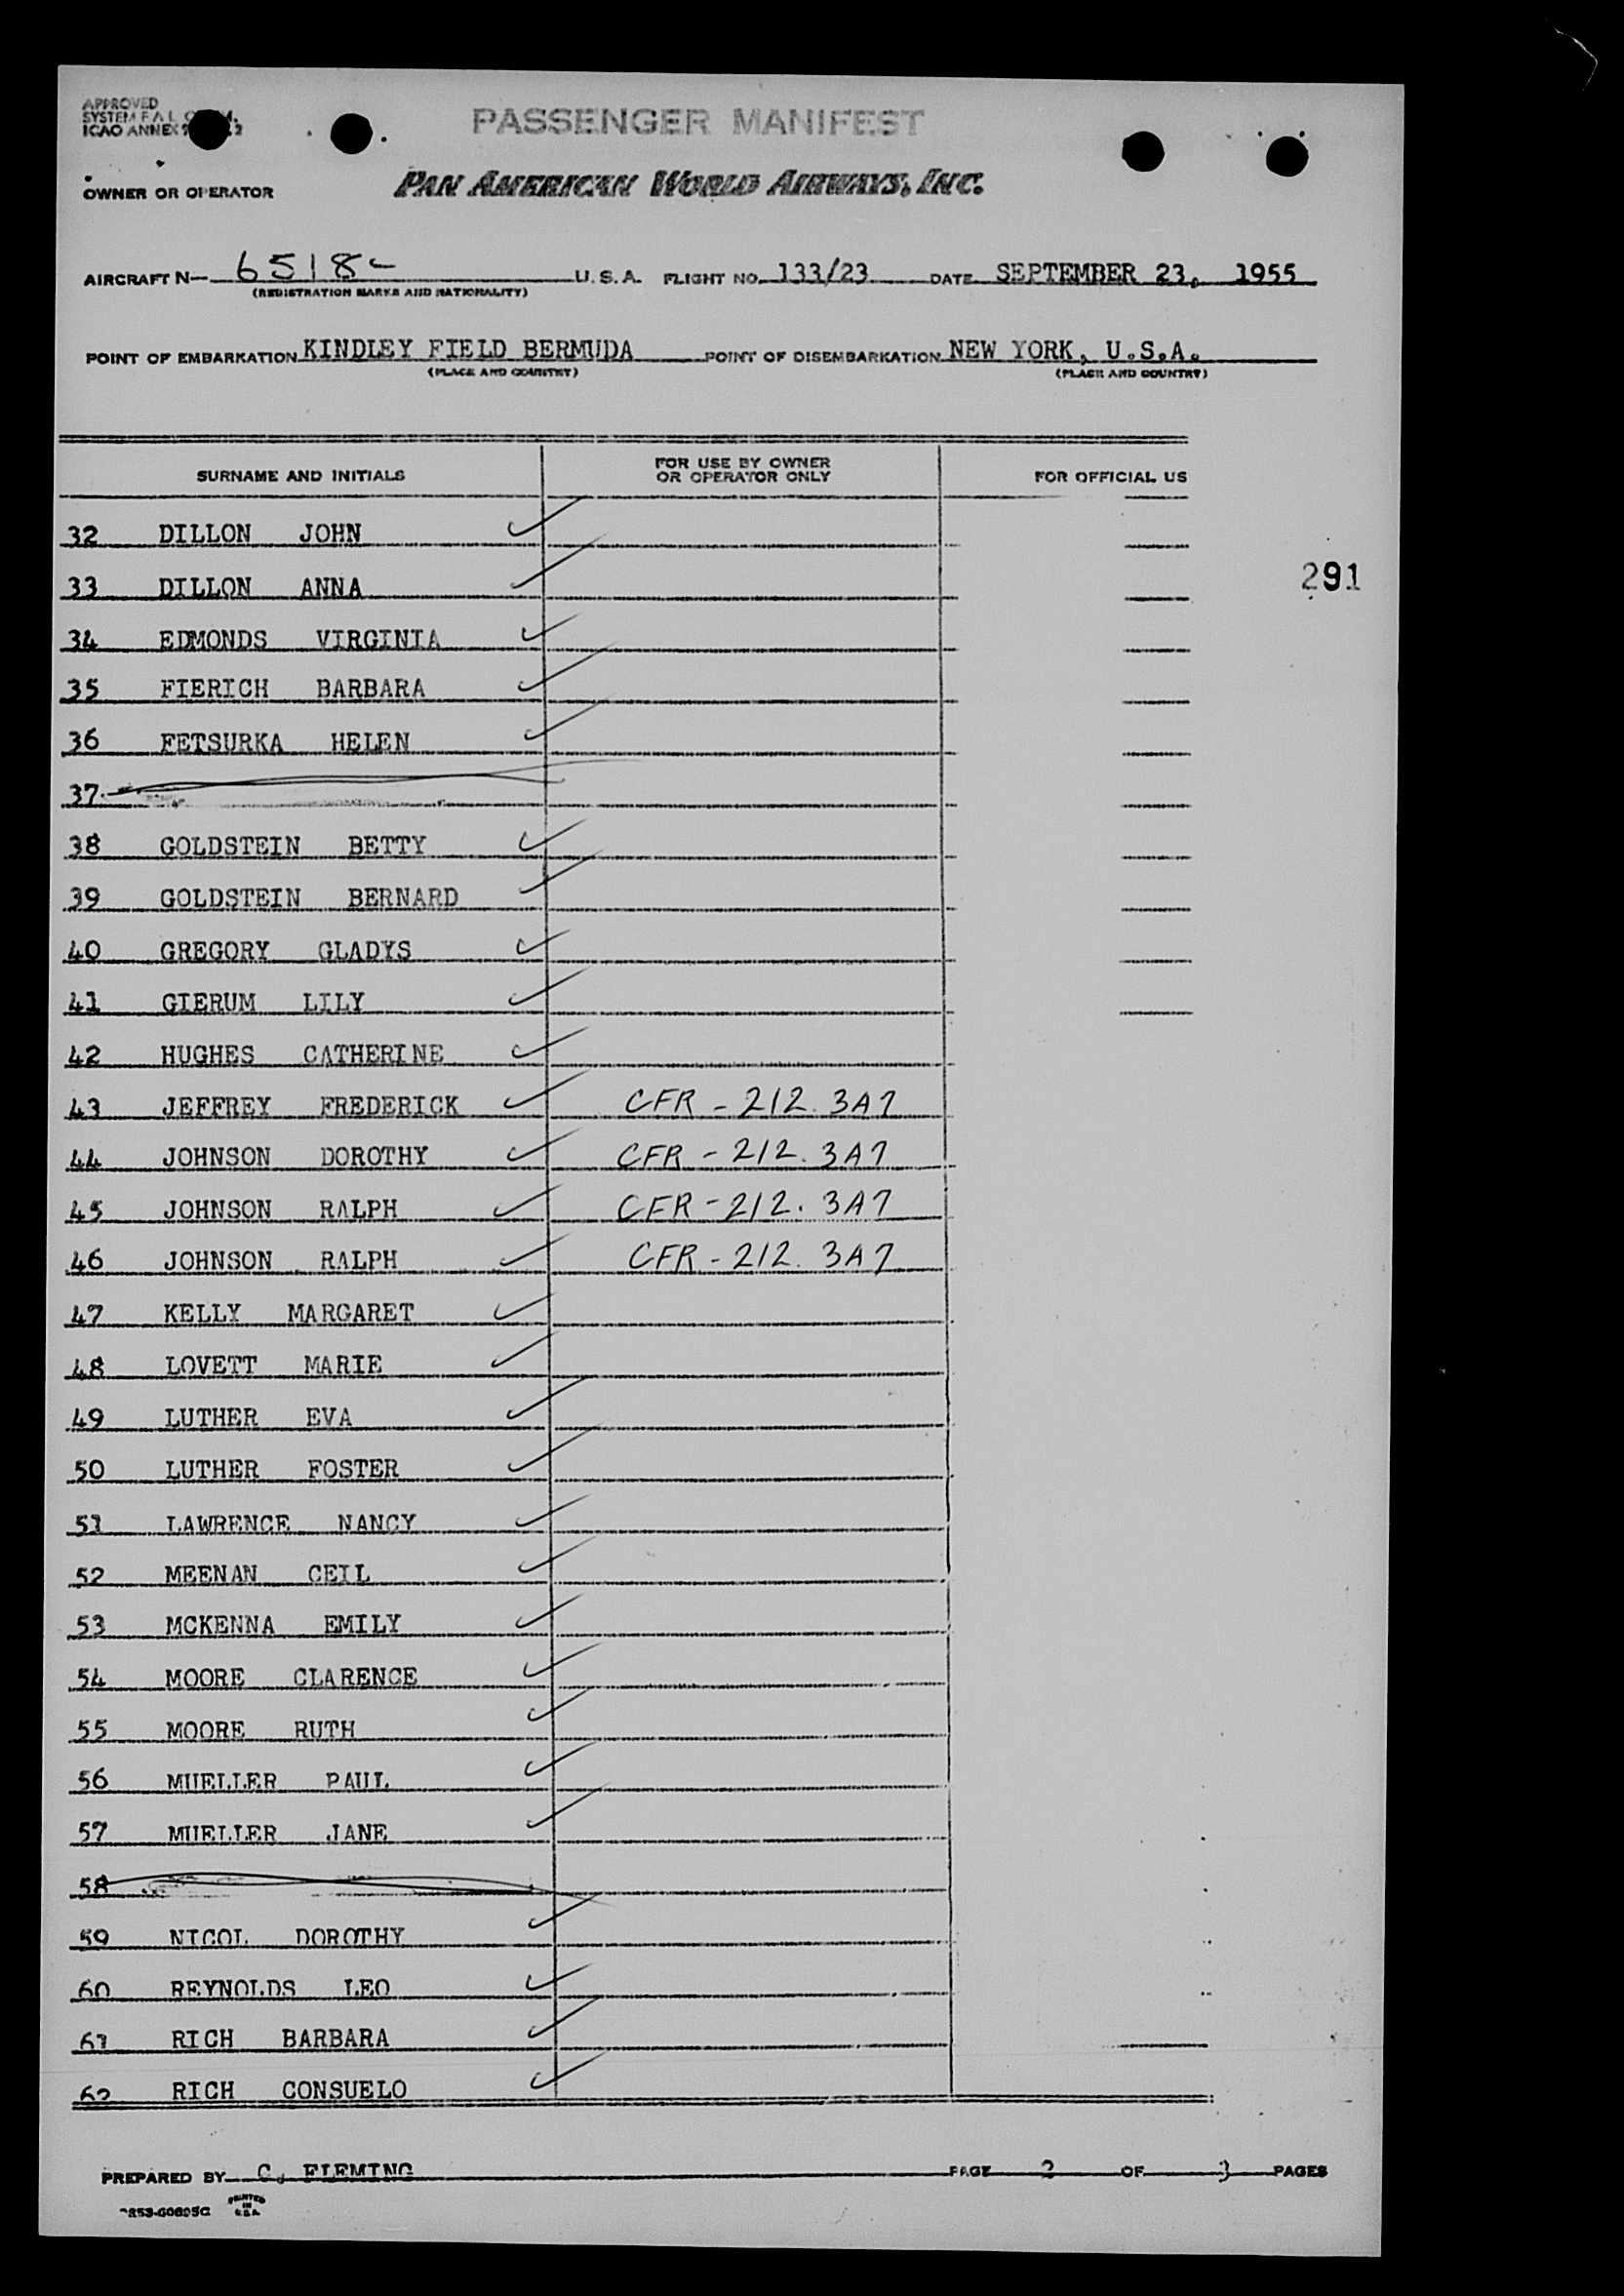 APPROVED
SYSTEM F A L
ICAO ANNEX
PASSENGER MANIFEST
OWNER OR OPERATOR PAN AMERICAN WORLD AIRWAYS, INC.
AIRCRAFT N— 6518C U. S. A. FLIGHT NO. 133/23 DATE SEPTEMBER 23, 1955
(REGISTRATION MARKS AND NATIONALITY)
POINT OF EMBARKATION KINDLEY FIELD BERMUDA POINT OF DISEMBARKATION NEW YORK, U.S.A.
(PLACE AND COUNTRY) (PLACE AND COUNTRY)
SURNAME AND INITIALS FOR USE BY OWNER OR OPERATOR ONLY FOR OFFICIAL US
32 DILLON JOHN
291
33 DILLON ANNA
34 EDMONDS VIRGINIA
35 FIERICH BARBARA
36 FETSURKA HELEN
37
38 GOLDSTEIN BETTY
39 GOLDSTEIN BERNARD
40 GREGORY GLADYS
41 GIERUM LILY
42 HUGHES CATHERINE
43 JEFFREY FREDERICK CFR - 212. 3A7
44 JOHNSON DOROTHY CFR - 212. 3A7
45 JOHNSON RALPH CFR - 212. 3A7
46 JOHNSON RALPH CFR - 212. 3A7
47 KELLY MARGARET
48 LOVETT MARIE
49 LUTHER EVA
50 LUTHER FOSTER
51 LAWRENCE NANCY
52 MEENAN CEIL
53 MCKENNA EMILY
54 MOORE CLARENCE
55 MOORE RUTH
56 MUELLER PAUL
57 MUELLER JANE
58
59 NICOL DOROTHY
60 REYNOLDS LEO
61 RICH BARBARA
62 RICH CONSUELO
PREPARED BY C. FLEMING PAGE 2 OF 3 PAGES
PRINTED
IN
U.S.A.